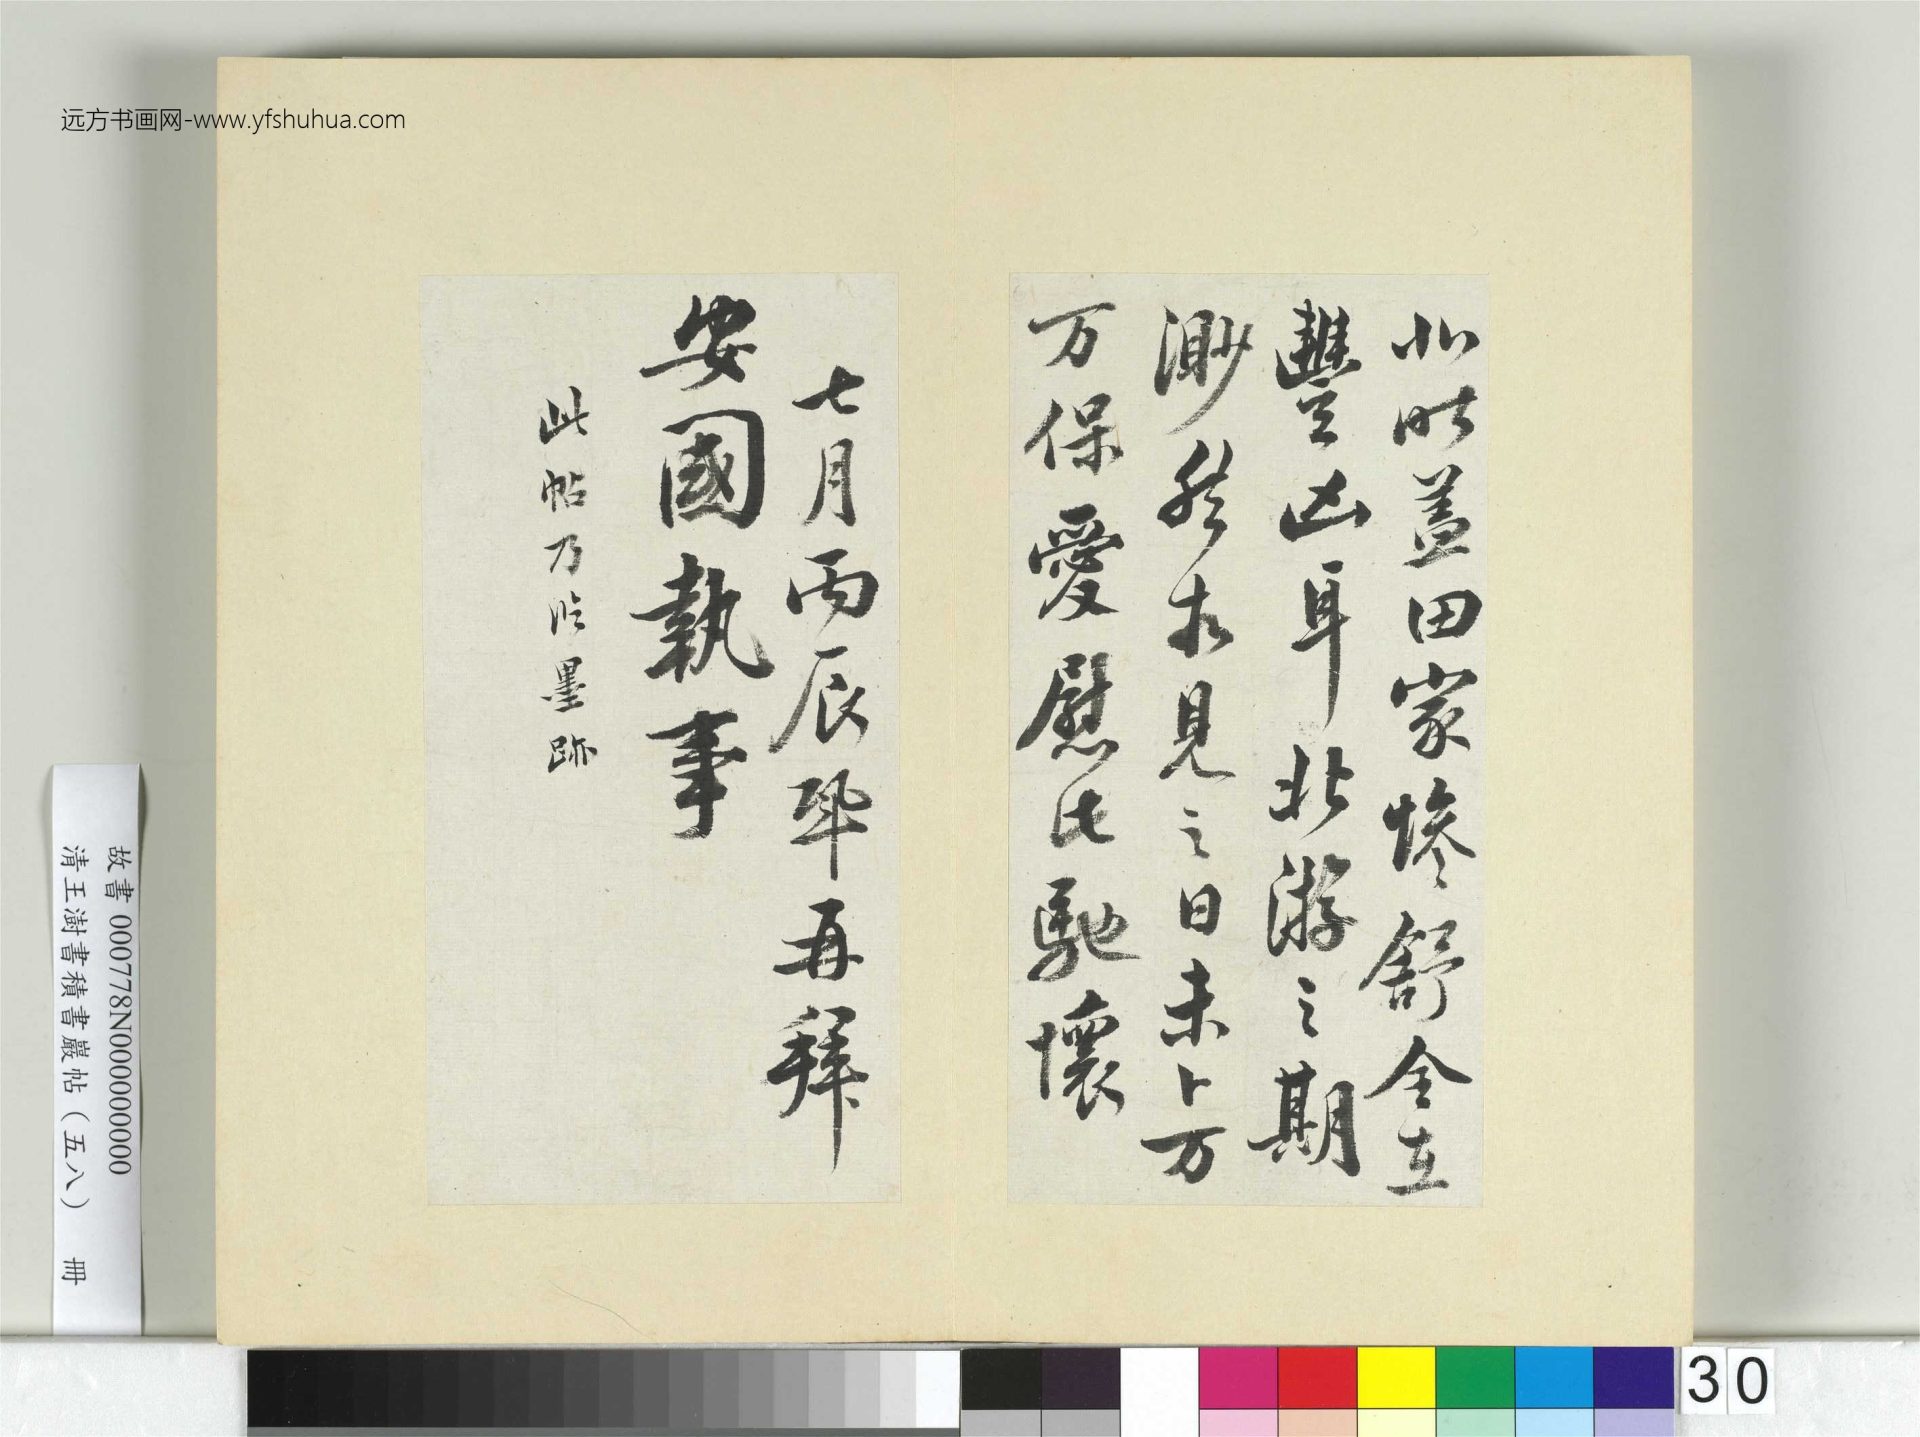 远方书画网-www.yfshuhua.com
蓋田家慘舒全在
豐凶耳北游之期
渺然相見之日未卜万
万保愛慰此馳懷
七月丙辰再拜
安國執事
此帖乃臨墨跡
故書 000778N000000000
清王澍書積書巖帖（五八） 冊
30